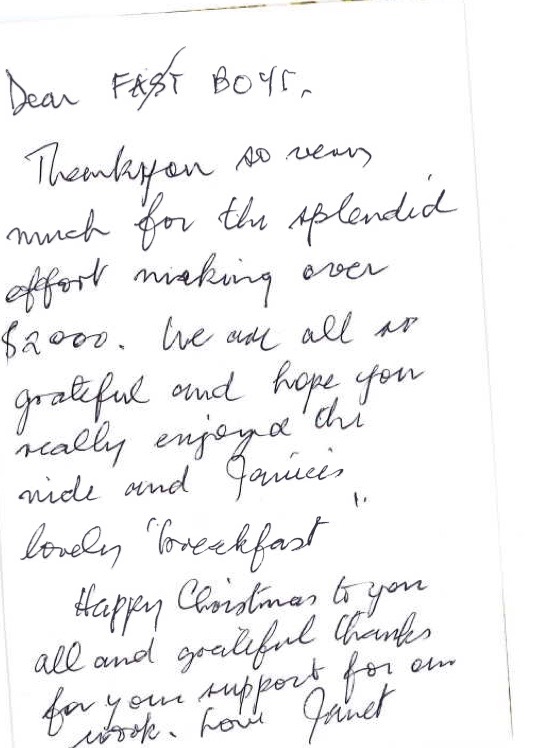 Dear FAST BOYS,
Thankyou so very
much for the splendid
effort making over
$2000. We are all so
grateful and hope you
really enjoyed the
ride and Janice's
lovely "breakfast"
Happy Christmas to you
all and grateful thanks
for your support for our
work. Love Janet